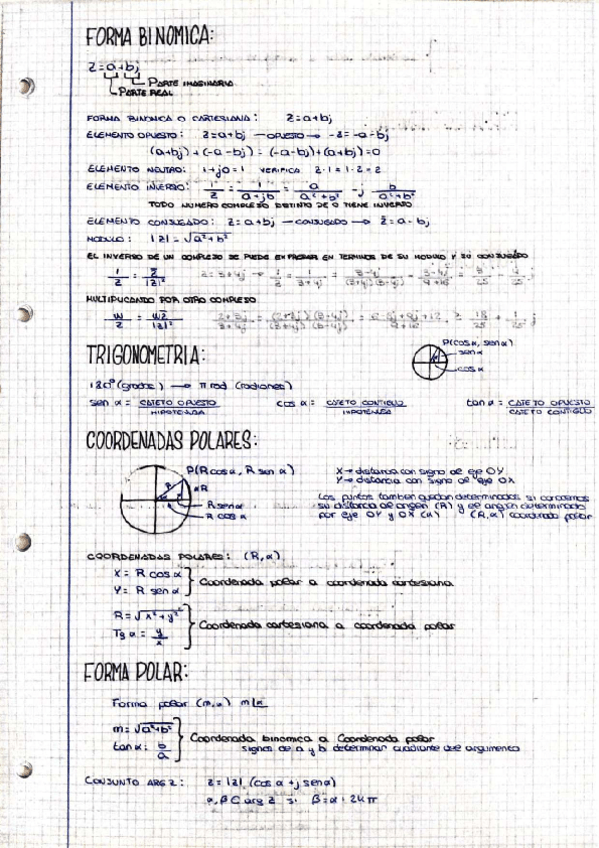 FORMA BINOMICA:
z = a+bj
PARTE IMAGINARIA
PARTE REAL
FORMA BINOMICA O CARTESIANA: z = a+bj
ELEMENTO OPUESTO: z = a+bj — OPUESTO → -z = -a-bj
(a+bj)+(-a-bj) = (-a-bj)+(a+bj) = 0
ELEMENTO NEUTRO: 1+j0 = 1 VERIFICA z·1 = 1·z = z
ELEMENTO INVERSO: 1/z = 1/(a+jb) = a/(a²+b²) - j b/(a²+b²)
TODO NUMERO COMPLEJO DISTINTO DE 0 TIENE INVERSO
ELEMENTO CONJUGADO: z = a+bj — CONJUGADO → z̄ = a-bj
MODULO: |z| = √a²+b²
EL INVERSO DE UN COMPLEJO SE PUEDE EXPRESAR EN TERMINOS DE SU MODULO Y SU CONJUGADO
1/z = z̄/|z|² z = 3+4j → 1/z = 1/(3+4j) = (3-4j)/((3+4j)(3-4j)) = (3-4j)/(9+16) = 3/25 - 4/25 j
MULTIPLICANDO POR OTRO COMPLEJO
w/z = wz̄/|z|² (2+3j)/(3+4j) = (2+3j)(3-4j)/((3+4j)(3-4j)) = 18/25 + 1/25 j
TRIGONOMETRIA:
P(cos α, sen α)
sen α
cos α
180° (grados) → π rad (radianes)
sen α = CATETO OPUESTO/HIPOTENUSA cos α = CATETO CONTIGUO/HIPOTENUSA tan α = CATETO OPUESTO/CATETO CONTIGUO
COORDENADAS POLARES:
P(R cos α, R sen α)
R
αR
R sen α
R cos α
X → distancia con signo al eje OY
Y → distancia con signo al eje OX
Los puntos tambien quedan determinados si conocemos
su distancia al origen (R) y el angulo determinado
por eje OY y OX (α) (R, α) coordenada polar
COORDENADAS POLARES: (R, α)
X = R cos α
Y = R sen α
Coordenada polar a coordenada cartesiana
R = √x²+y²
Tg α = y/x
Coordenada cartesiana a coordenada polar
FORMA POLAR:
Forma polar (m, α) m∠α
m = √a²+b²
tan α = b/a
Coordenada binomica a Coordenada polar
signos de a y b determinar cuadrante del argumento
CONJUNTO ARG Z: z = |z| (cos α + j sen α)
α, β C arg z si β = α + 2kπ